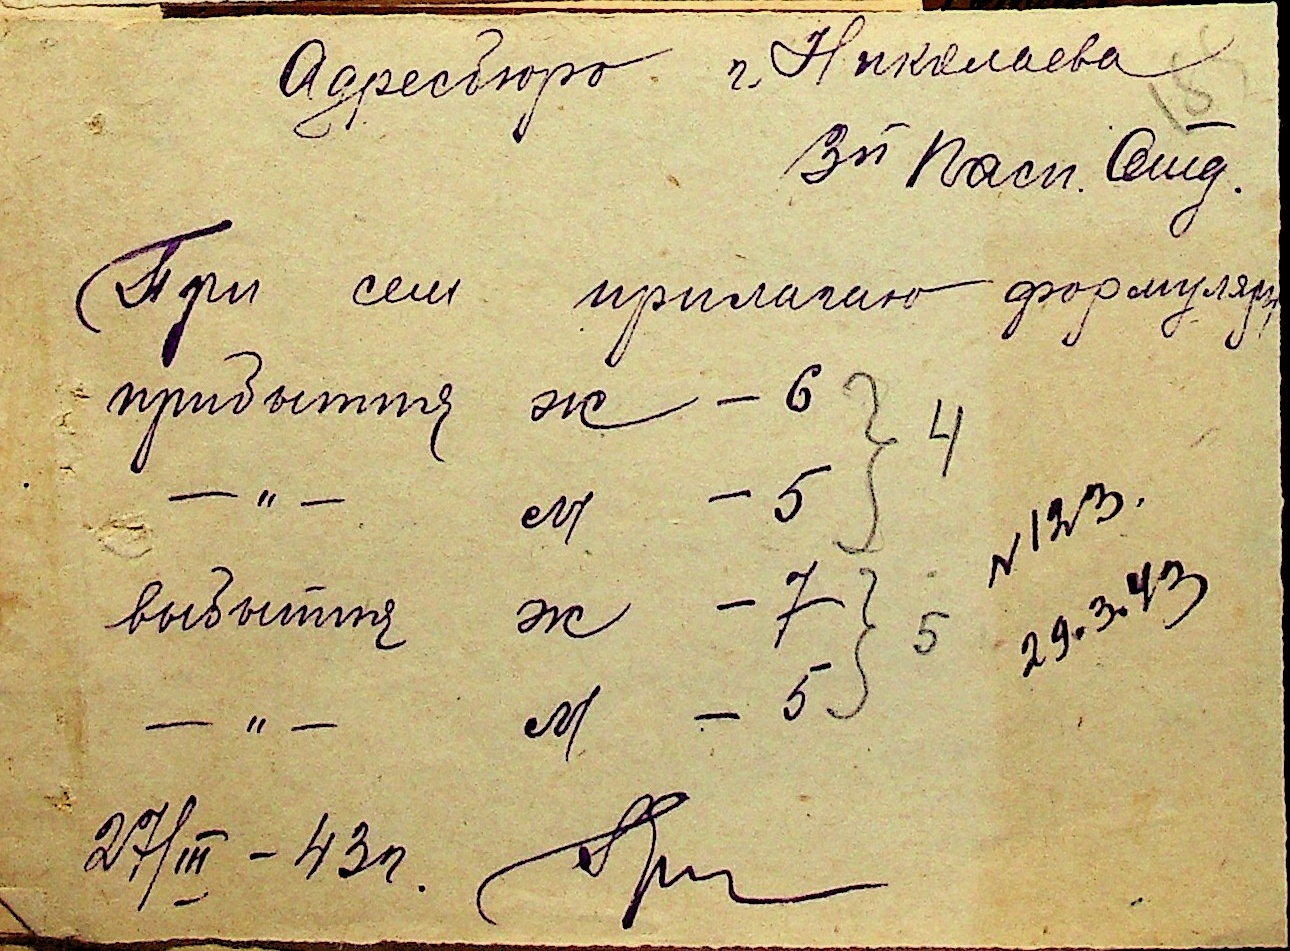 Адресбюро г. Николаева
3й Пасп. Отд.
При сем прилагаю формуляры
прибыття ж — 6
— " — м — 5
} 4
выбыття ж — 7
— " — м — 5
} 5
N 123.
29.3.43
27/III - 43 г.